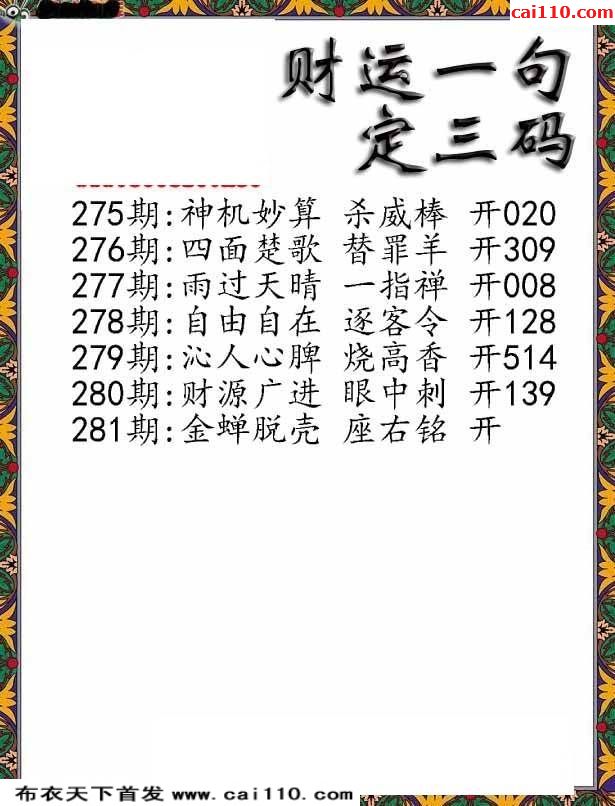 cai110.com
财运一句
定三码
275期:神机妙算 杀威棒 开020
276期:四面楚歌 替罪羊 开309
277期:雨过天晴 一指禅 开008
278期:自由自在 逐客令 开128
279期:沁人心脾 烧高香 开514
280期:财源广进 眼中刺 开139
281期:金蝉脱壳 座右铭 开
布衣天下首发 www.cai110.com